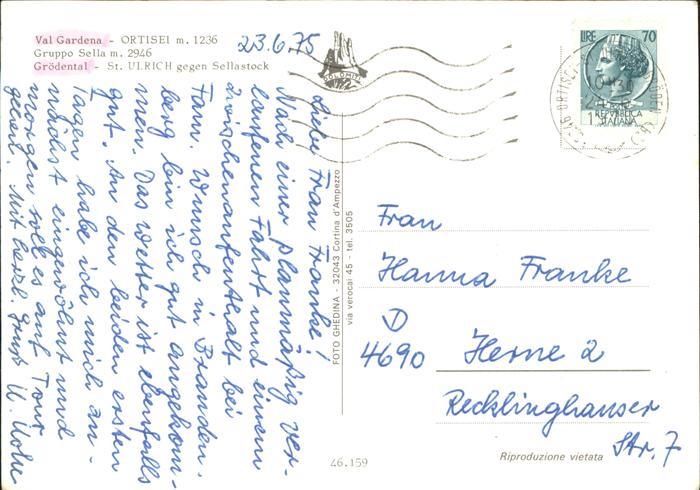 Val Gardena - ORTISEI m. 1236
Gruppo Sella m. 2946
Grödental - St. ULRICH gegen Sellastock
23.6.75
DOLOMITI
LIRE 70
REPVBBLICA
ITALIANA
Liebe Frau Franke!
Nach einer planmäßig ver-
laufenen Fahrt und einem
Zwischenaufenthalt bei
Fam. Wunsch in Branden-
berg bin ich gut angekom-
men. Das Wetter ist ebenfalls
gut. An den beiden ersten
Tagen habe ich mich zu-
nächst eingewöhnt und
morgen soll es auf Tour
gehen. Mit herzl. Gruß
FOTO GHEDINA - 32043 Cortina d'Ampezzo
via verocai 45 - tel. 3505
Frau
Hanna Franke
D
4690 Herne 2
Recklinghauser
Str. 7
46.159
Riproduzione vietata